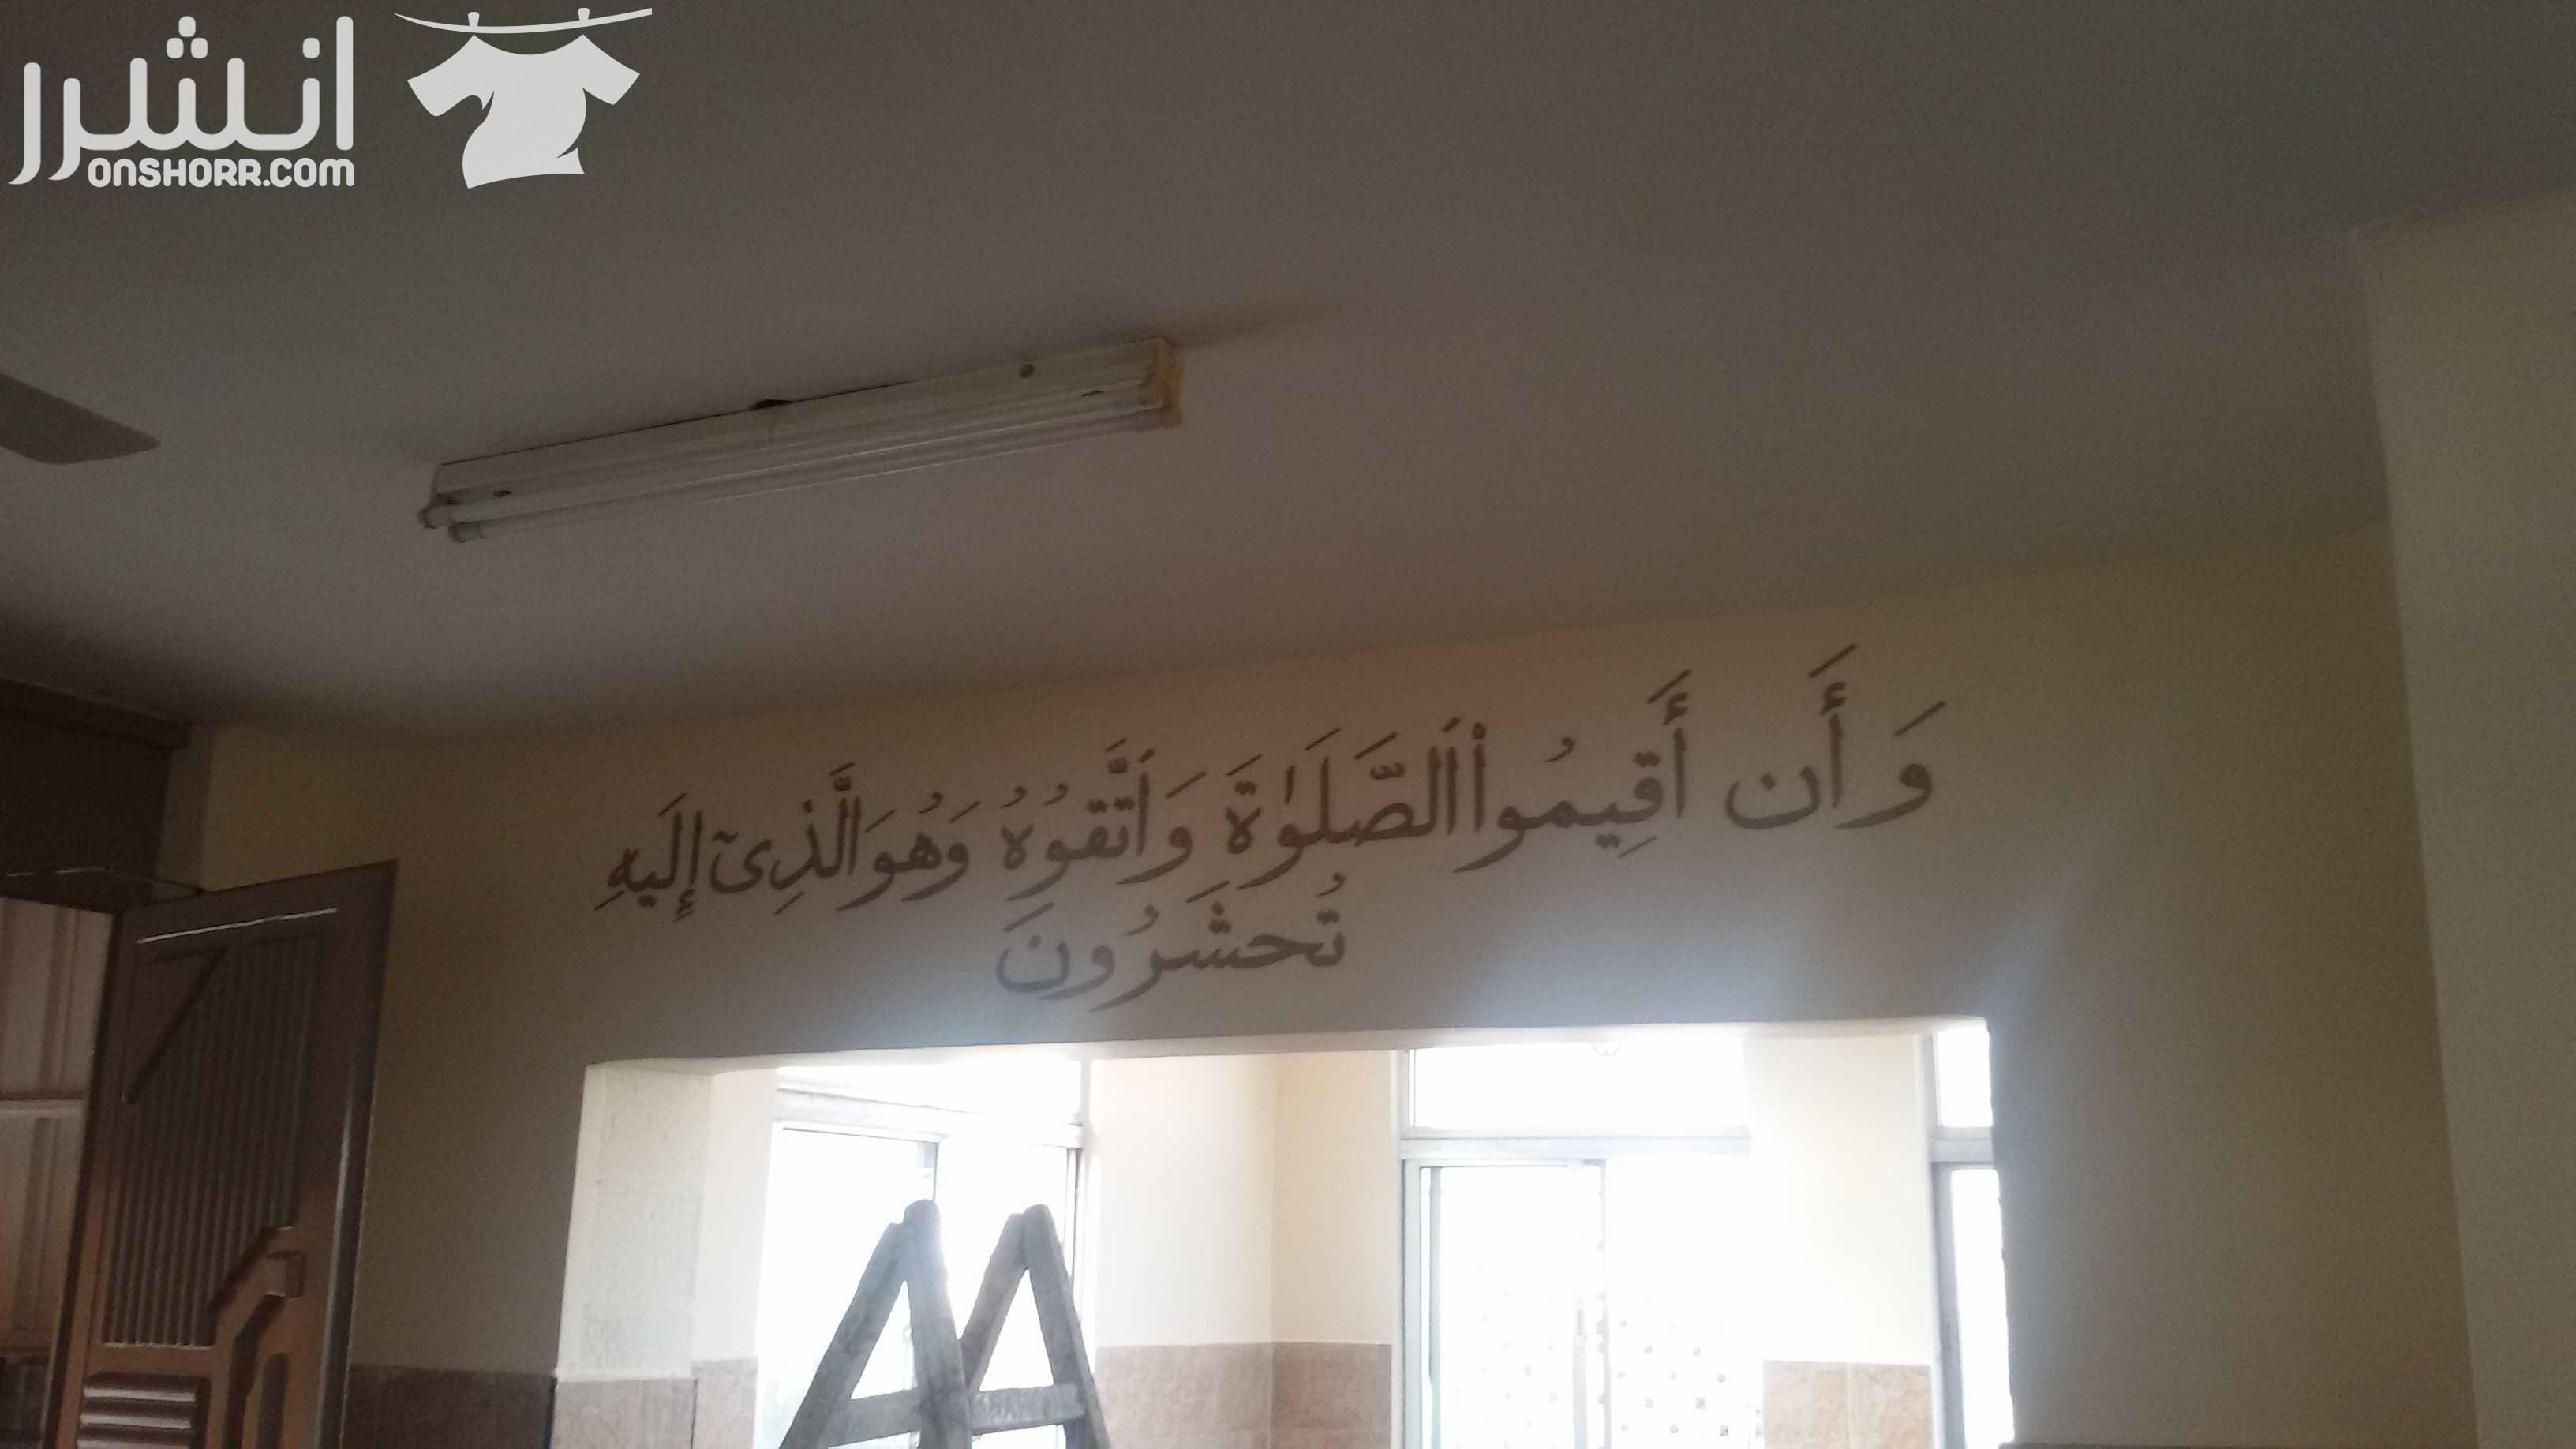 انشرر
ONSHORR.COM
وَأَن أَقِيمُواْ ٱلصَّلَوٰةَ وَٱتَّقُوهُ وَهُوَ الَّذِىٓ إِلَيهِ
تُحشَرُونَ